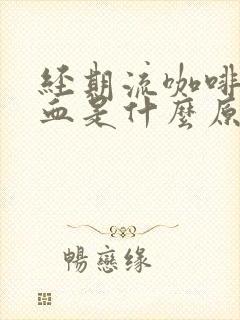 经期流咖啡
血是什麼原
暢戀缘